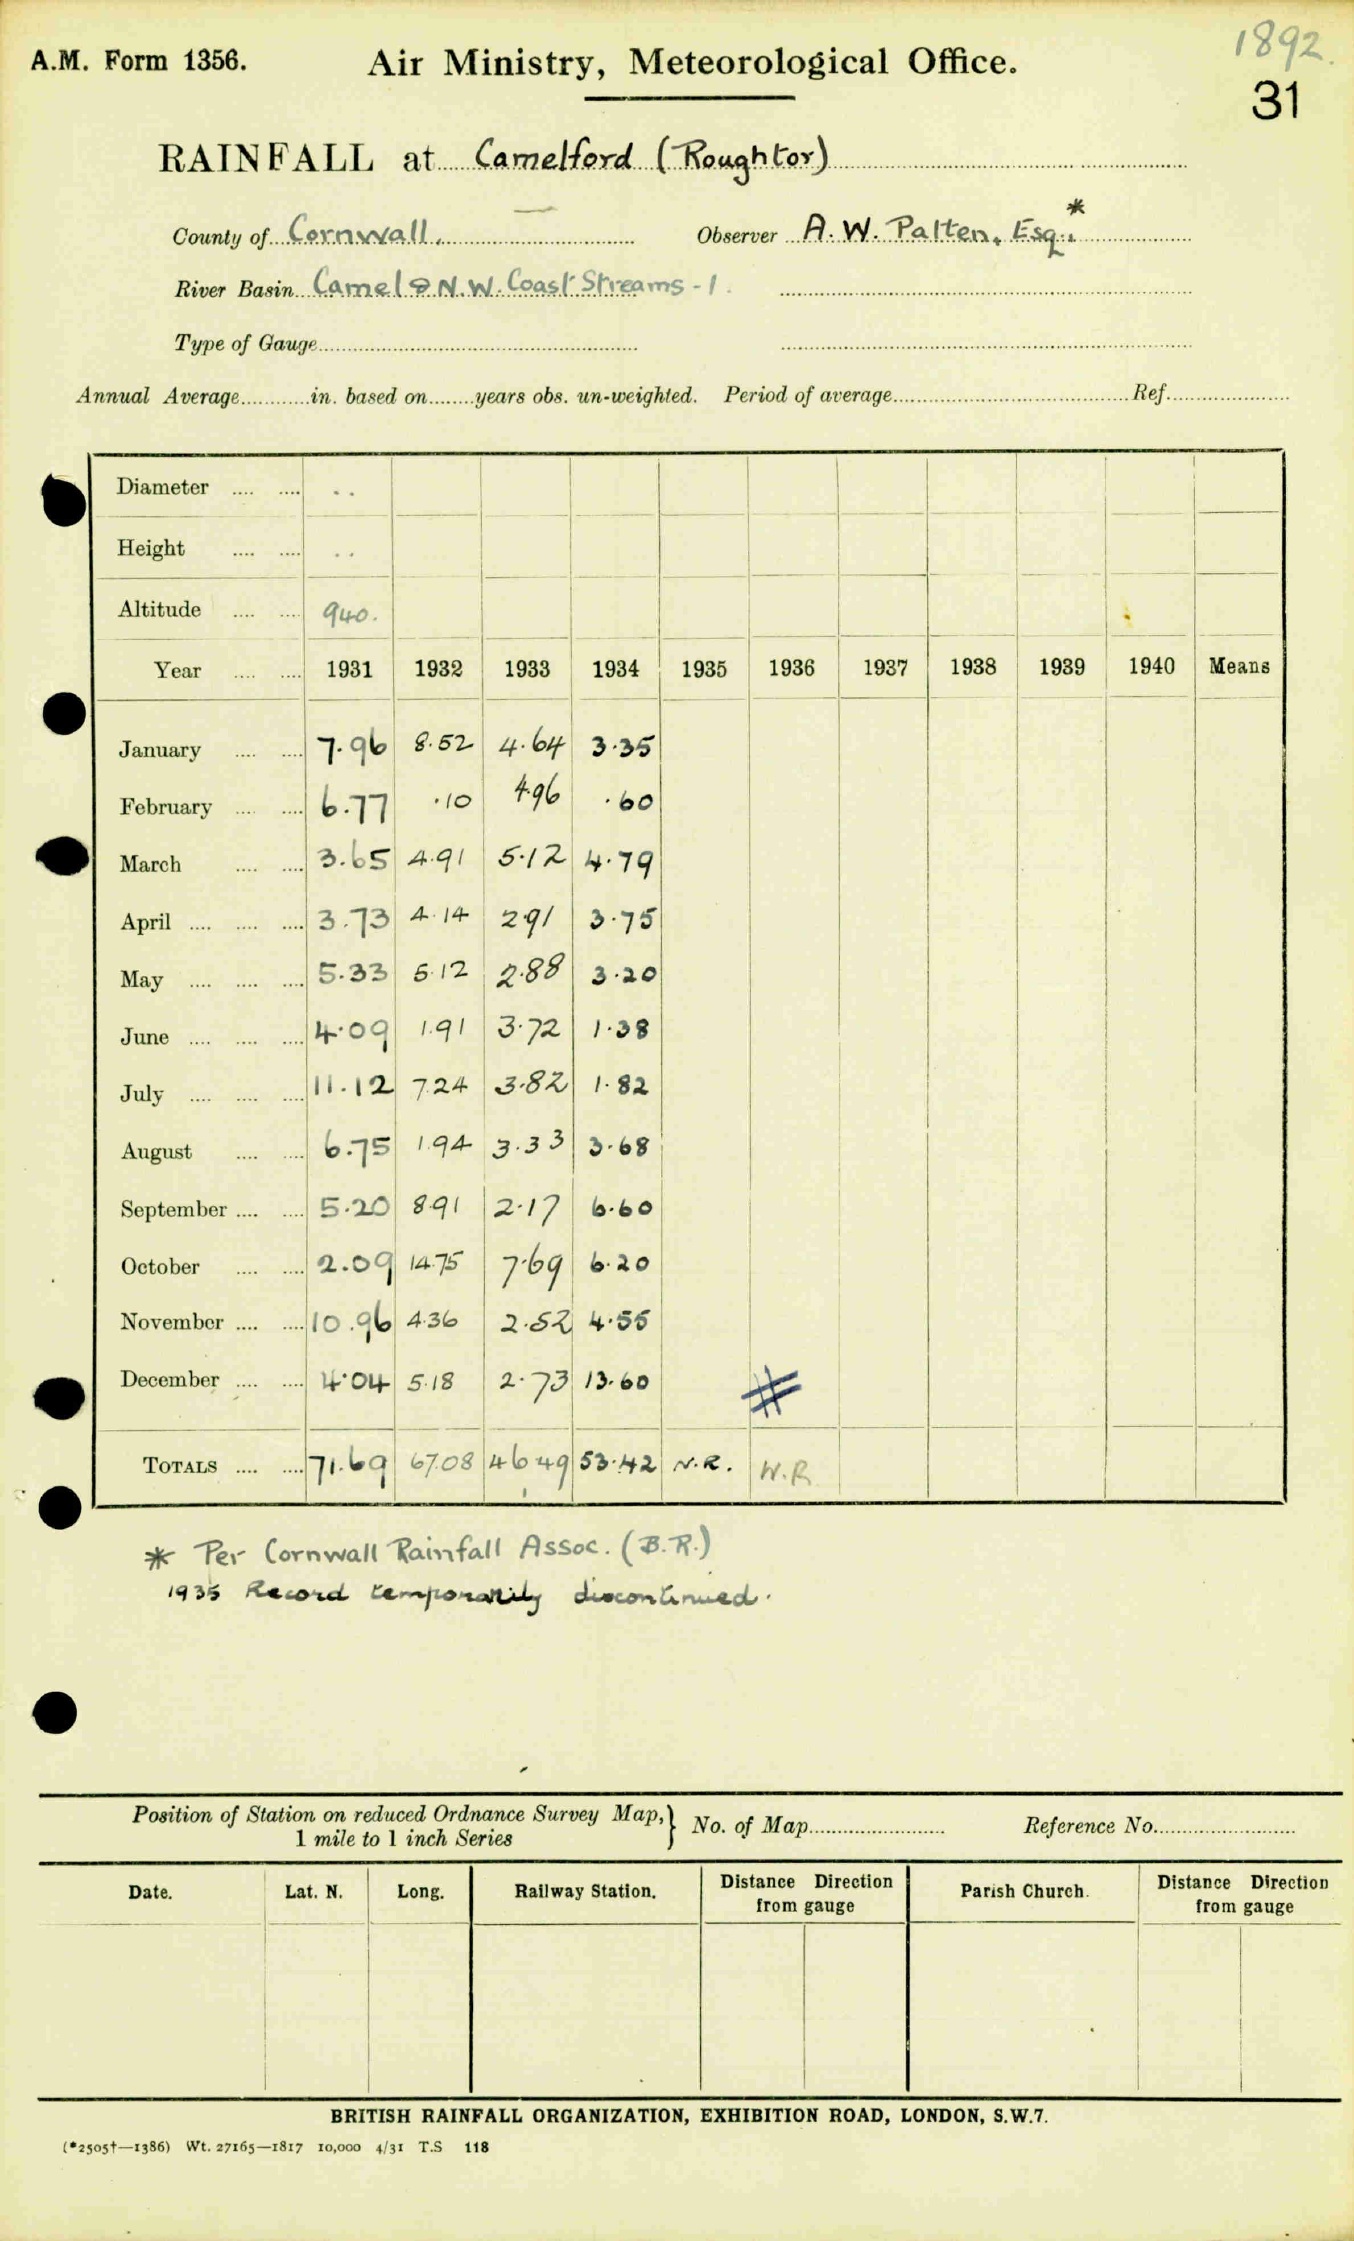 1892.
A.M. Form 1356. Air Ministry, Meteorological Office.
31
RAINFALL at Camelford (Roughtor)
County of Cornwall. Observer A. W. Palten, Esq. *
River Basin Camel & N.W. Coast Streams - 1.
Type of Gauge
Annual Average in. based on years obs. un-weighted. Period of average Ref.
Diameter .... .... . .
Height .... .... . .
Altitude .... .... 940.
Year .... .... 1931 1932 1933 1934 1935 1936 1937 1938 1939 1940 Means
January .... .... 7.96 8.52 4.64 3.35
February .... .... 6.77 .10 4.96 .60
March .... .... 3.65 4.91 5.12 4.79
April .... .... .... 3.73 4.14 2.91 3.75
May .... .... .... 5.33 5.12 2.88 3.20
June .... .... .... 4.09 1.91 3.72 1.38
July .... .... .... 11.12 7.24 3.82 1.82
August .... .... 6.75 1.94 3.33 3.68
September .... .... 5.20 8.91 2.17 6.60
October .... .... 2.09 14.75 7.69 6.20
November .... .... 10.96 4.36 2.52 4.55
December .... .... 4.04 5.18 2.73 13.60 #
TOTALS .... .... 71.69 67.08 46.49 53.42 N.R. N.R
* Per Cornwall Rainfall Assoc. (B.R.)
1935 Record temporarily discontinued.
Position of Station on reduced Ordnance Survey Map, } No. of Map Reference No.
1 mile to 1 inch Series
Date. Lat. N. Long. Railway Station. Distance Direction from gauge Parish Church. Distance Direction from gauge
BRITISH RAINFALL ORGANIZATION, EXHIBITION ROAD, LONDON, S.W.7.
(*2505†—1386) Wt. 27165—1817 10,000 4/31 T.S 118